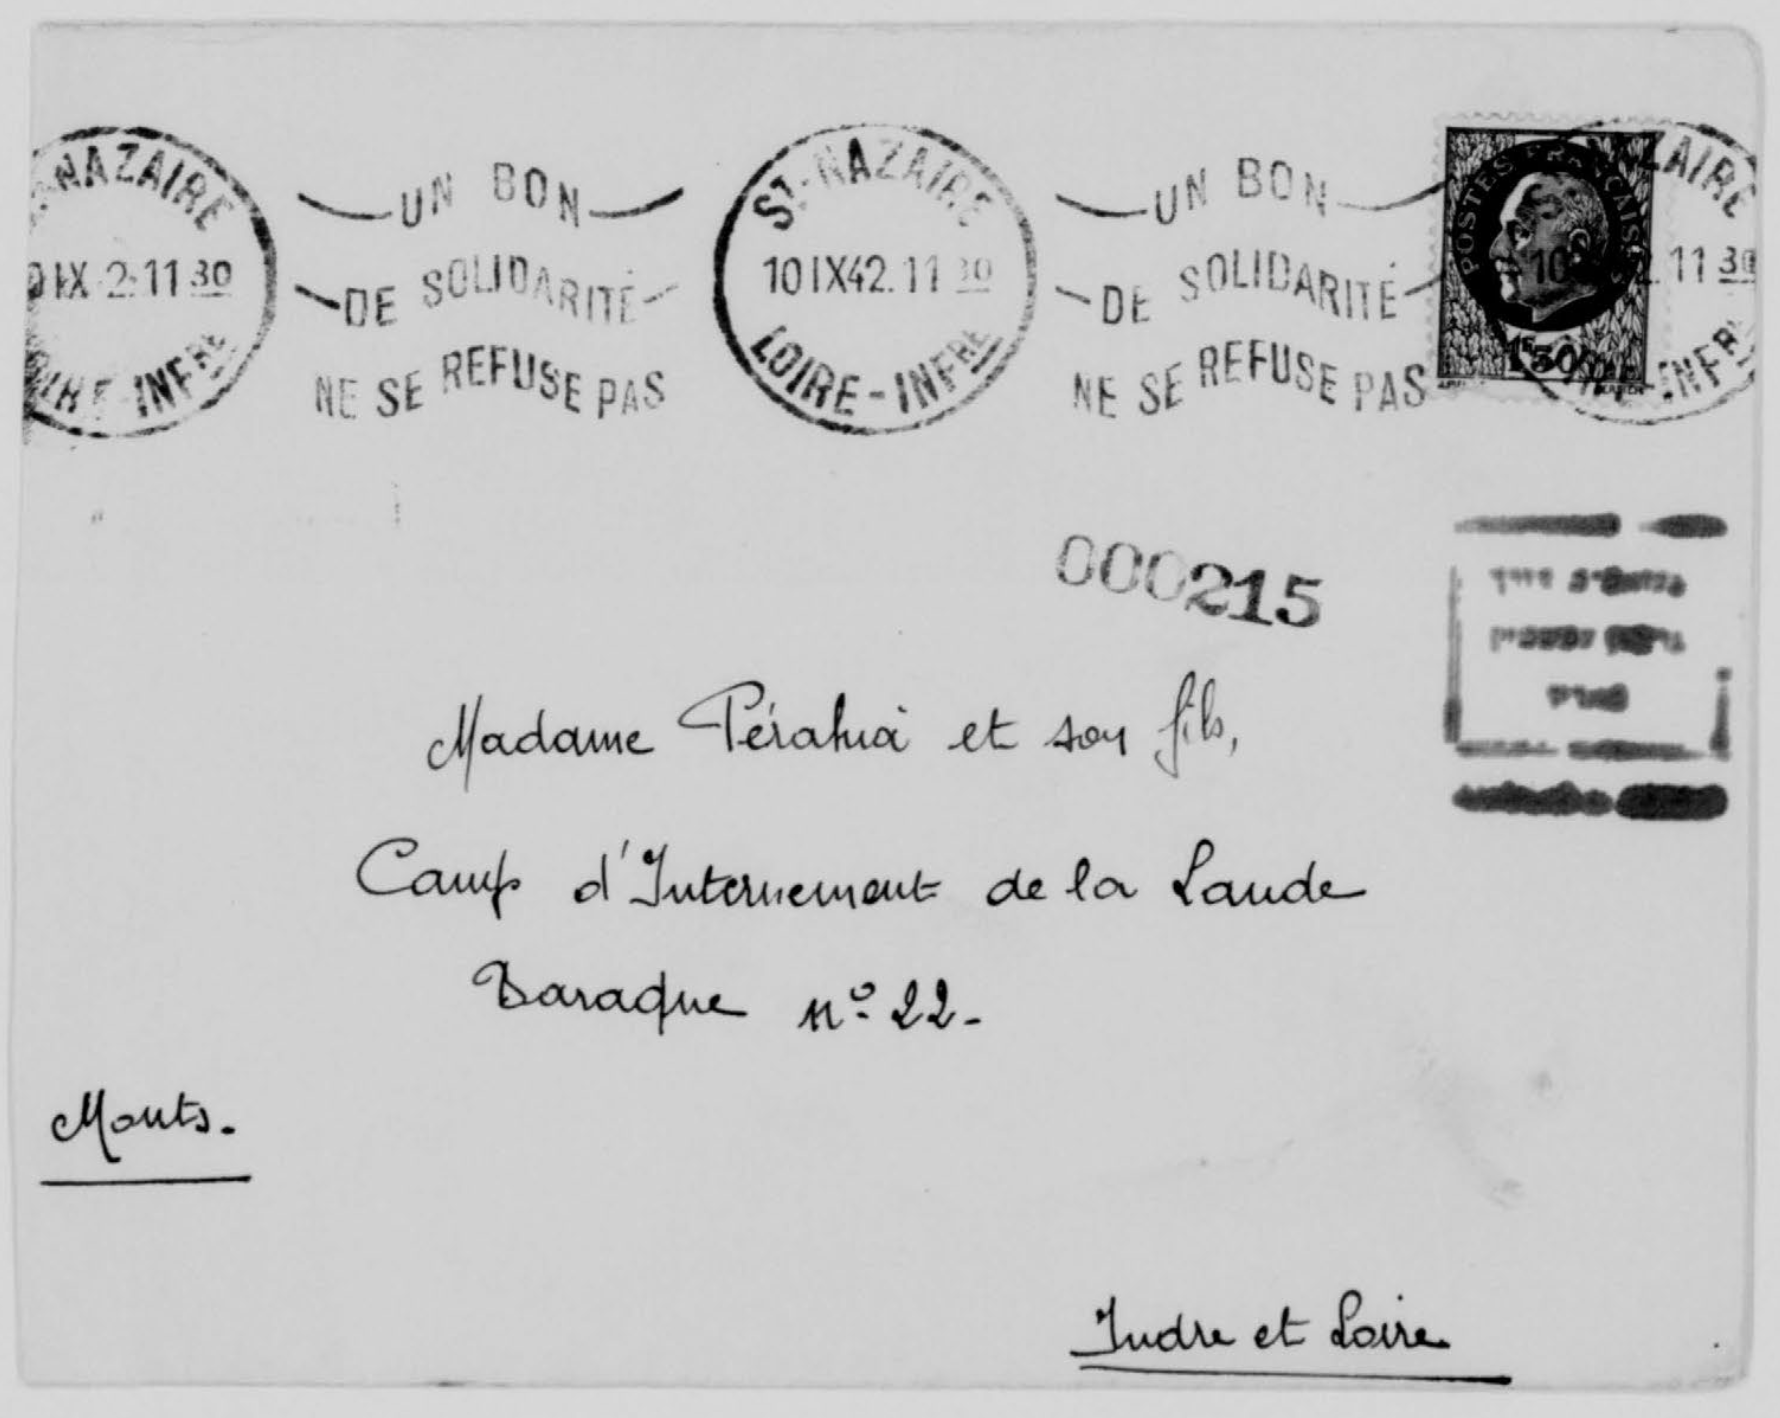 ST-NAZAIRE
10 IX 42. 11 30
LOIRE-INFRE
UN BON
DE SOLIDARITÉ
NE SE REFUSE PAS
ST-NAZAIRE
10 IX 42. 11 30
LOIRE-INFRE
UN BON
DE SOLIDARITÉ
NE SE REFUSE PAS
POSTES FRANÇAISES
1F50
NAZAIRE
10 11 30
INFRE
000215
Madame Pérahia et son fils,
Camp d'Internement de la Lande
Baraque nº 22-
Monts.
Indre et Loire